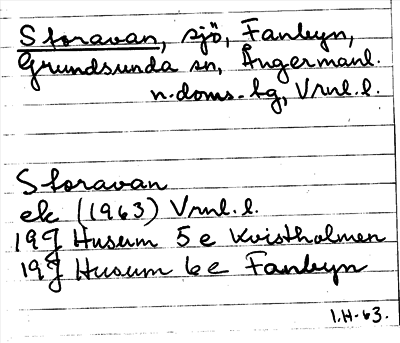 Storavan, sjö, Fanbyn,
Grundsunda sn, Ångermanl.
n. doms. bg, Vrnl. l.
Storavan
ek (1963) Vrnl. l.
19J Husum 5e Kvistholmen
19J Husum 6e Fanbyn
I.H-63.